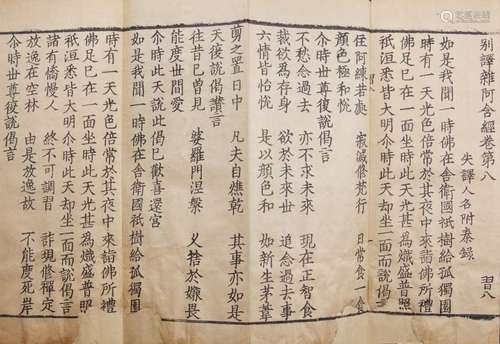 別譯雜阿含經卷第八　習八
失譯人名附秦錄
如是我聞一時佛在舍衛國祇樹給孤獨園
時有一天光色倍常於其夜中來詣佛所禮
佛足已在一面坐時此天光甚為熾盛普照
祇洹悉皆大明時此天却坐一面而說偈言
住阿練若處　寂滅修梵行　日常食一食
顏色極和悅
尒時世尊復說偈言
亦不求未來　現在正智食
飯欲為存身　追念過去事
六情皆怡悅　是以顏色和　如新生茅葦
勇之置日中　凡夫自燋乾　其事亦如是
天復說偈讚言
往昔已曾見　婆羅門涅槃　乆捨於嫌畏
能度世間愛
尒時此天說此偈已歡喜還宮
如是我聞一時佛在舍衛國祇樹給孤獨園
時有一天光色倍常於其夜中來詣佛所禮
佛足已在一面坐時此天光甚為熾盛普照
祇洹悉皆大明時此天却坐一面而說偈言
諸有憍慢人　終不可調習　詐現修禪定
放逸在空林　由是放逸故　不能度死岸
尒時世尊復說偈言